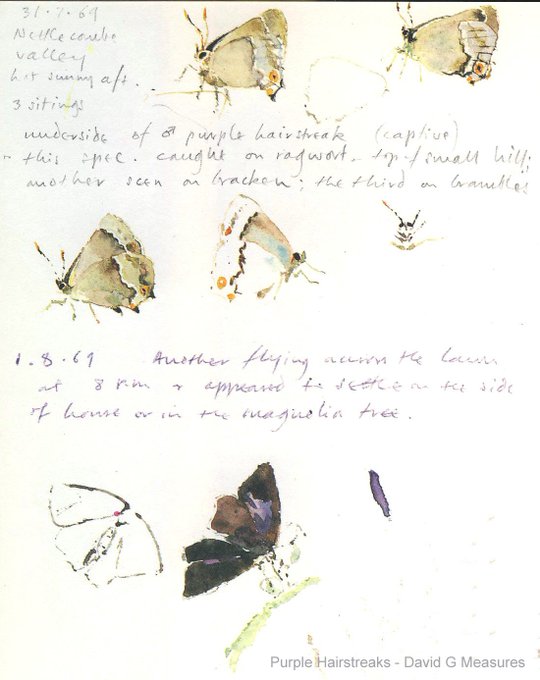 31.7.69
Nettlecombe
valley
hot sunny aft.
3 sitings
underside of ♂ purple hairstreak (captive)
- this spec. caught on ragwort - top of small hill;
another seen on bracken; the third on brambles
1.8.69 Another flying across the lawn
at 8 pm & appeared to settle on the side
of house or in the magnolia tree.
Purple Hairstreaks - David G Measures